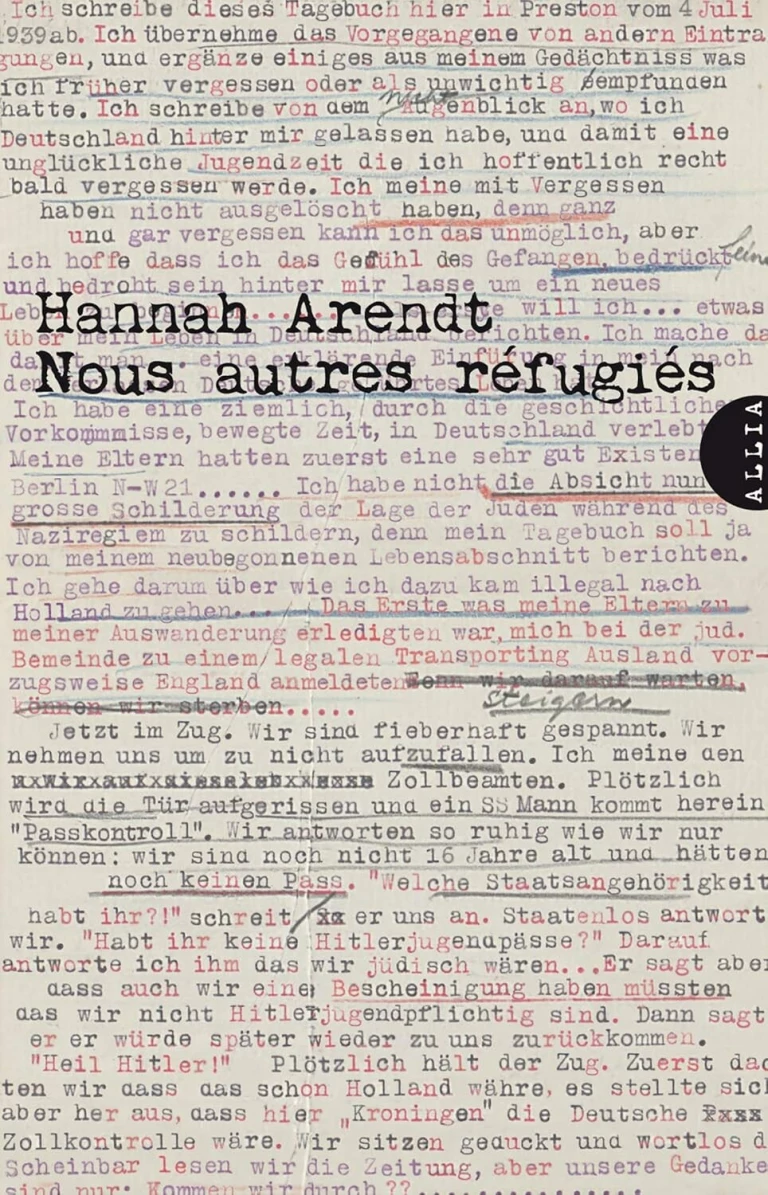 Ich schreibe dieses Tagebuch hier in Preston vom 4 Juli
1939ab. Ich übernehme das Vorgegangene von andern Eintra
gungen, und ergänze einiges aus meinem Gedächtniss was
ich früher vergessen oder als unwichtig empfunden
hatte. Ich schreibe von dem Augenblick an, wo ich
Deutschland hinter mir gelassen habe, und damit eine
unglückliche Jugendzeit die ich hoffentlich recht
bald vergessen werde. Ich meine mit Vergessen
haben nicht ausgelöscht haben, denn ganz
und gar vergessen kann ich das unmöglich, aber
ich hoffe dass ich das Gefühl des Gefangen, bedrückt
und bedroht sein hinter mir lasse um ein neues
will ich... etwas
Hannah Arendt
über mein Leben in Deutschland berichten. Ich mache da
Nous autres réfugiés
Ich habe eine ziemlich, durch die geschichtliche
Vorkommmisse, bewegte Zeit, in Deutschland verlebt
ALLIA
Meine Eltern hatten zuerst eine sehr gut Existen
Berlin N-W 21...... Ich habe nicht die Absicht nun
grosse Schilderung der Lage der Juden während des
Naziregiem zu schildern, denn mein Tagebuch soll ja
von meinem neubegonnenen Lebensabschnitt berichten.
Ich gehe darum über wie ich dazu kam illegal nach
Holland zu gehen... Das Erste was meine Eltern zu
meiner Auswanderung erledigten war, mich bei der jud.
Bemeinde zu einem legalen Transporting Ausland vor-
zugsweise England anmeldeten Wenn wir darauf warten,
können wir sterben.....
steigern
Jetzt im Zug. Wir sind fieberhaft gespannt. Wir
nehmen uns um zu nicht aufzufallen. Ich meine den
Zollbeamten. Plötzlich
wird die Tür aufgerissen und ein SS Mann kommt herein
"Passkontroll". Wir antworten so ruhig wie wir nur
können: wir sind noch nicht 16 Jahre alt und hätten
noch keinen Pass. "Welche Staatsangehörigkeit
habt ihr?!" schreit xx er uns an. Staatenlos antwort
wir. "Habt ihr keine Hitlerjugendpässe?" Darauf
antworte ich ihm das wir jüdisch wären...Er sagt aber
dass auch wir eine Bescheinigung haben müssten
das wir nicht Hitlerjugendpflichtig sind. Dann sagt
er er würde später wieder zu uns zurückkommen.
"Heil Hitler!" Plötzlich hält der Zug. Zuerst dac
ten wir dass das schon Holland währe, es stellte sich
aber her aus, dass hier „Kroningen" die Deutsche
Zollkontrolle wäre. Wir sitzen geduckt und wortlos d
Scheinbar lesen wir die Zeitung, aber unsere Gedanke
sind nur: Kommen wir durch??................